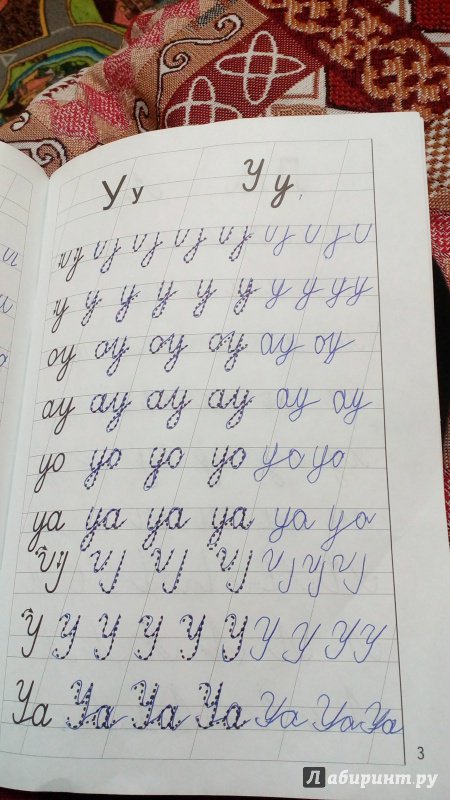 У у У у
у у у у у у у у у у
оу оу оу оу оу оу
ау ау ау ау ау ау
уо уо уо уо уо уо
уа уа уа уа уа уа
У У У У У У У У У У
Уа Уа Уа Уа Уа Уа Уа
3
Лабиринт.ру